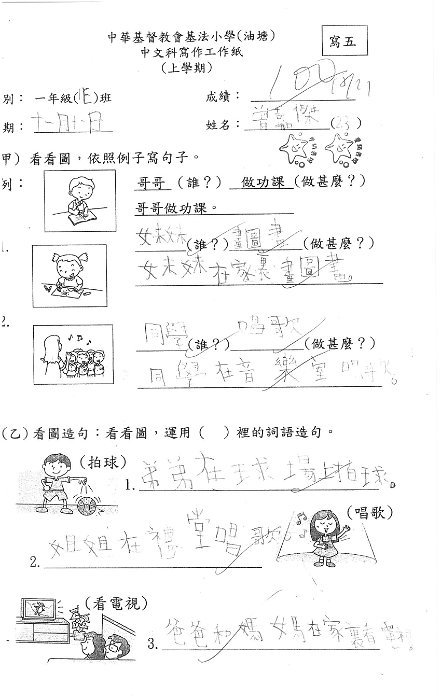 中華基督教會基法小學(油塘)
中文科寫作工作紙
(上學期)
寫五
別： 一年級(1E)班
成績： 100
期： 十一月十一日
姓名： 曾嘉傑 (23)
甲）看看圖，依照例子寫句子。
列： 哥哥（誰？） 做功課（做甚麼？）
哥哥做功課。
1. 妹妹(誰？) 畫圖畫 (做甚麼？)
妹妹在家裏畫圖畫。
2. 同學(誰？) 唱歌 (做甚麼？)
同學在音樂室唱歌。
(乙)看圖造句：看看圖，運用（ ）裡的詞語造句。
(拍球)
1. 弟弟在球場上拍球。
(唱歌)
2. 姐姐在禮堂唱歌
(看電視)
3. 爸爸和媽媽在家裏看電視